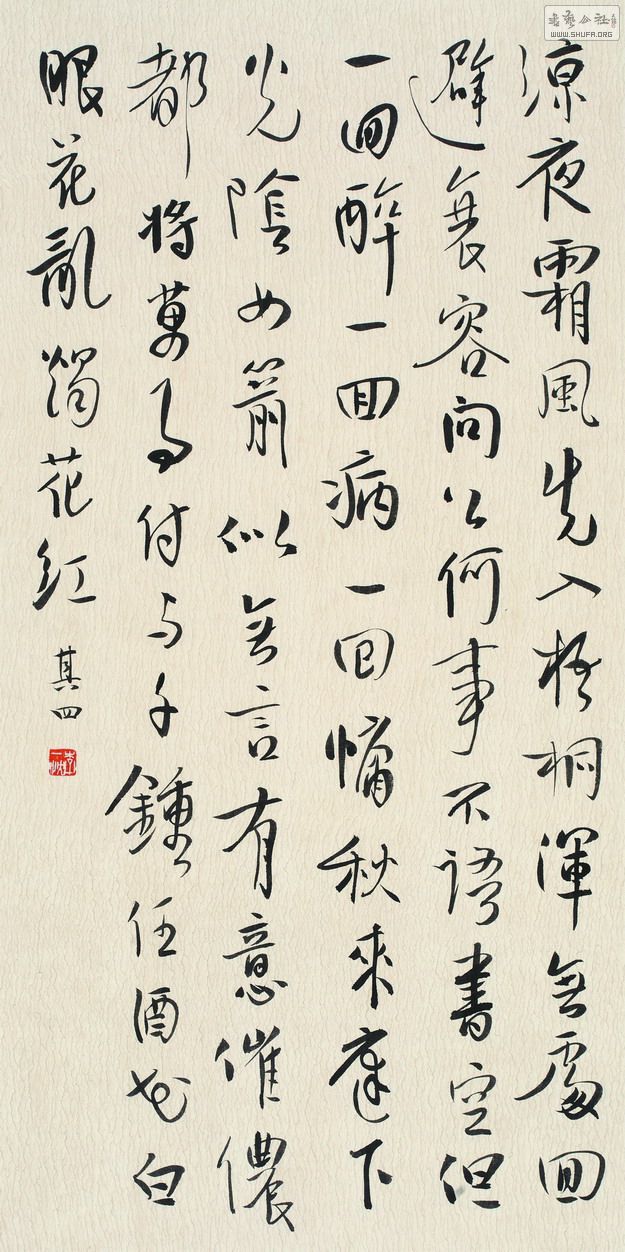 涼夜霜風先入梧桐渾無處回
避衰容問公何事不語書空但
一回醉一回病一回慵秋來庭下
光陰如箭似無言有意催儂
都將萬事付與千鍾任酒花白
眼花亂燭花紅
其四
書藝公社
WWW.SHUFA.ORG